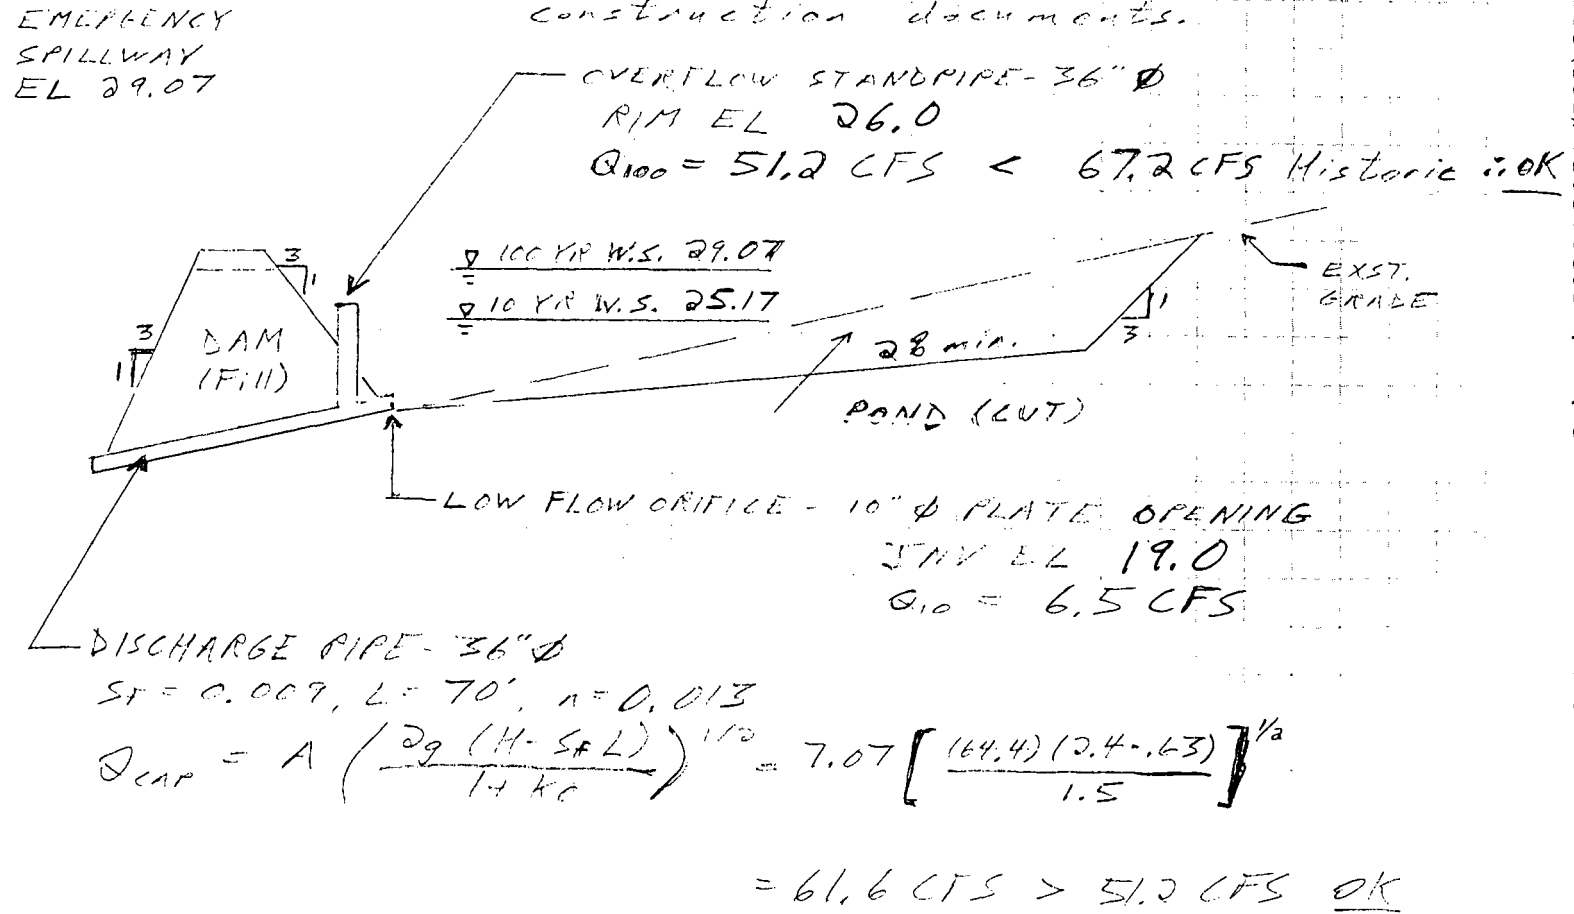 EMERGENCY
SPILLWAY
EL 29.07
construction documents.
OVERFLOW STANDPIPE - 36" Ø
RIM EL 26.0
Q100 = 51.2 CFS < 67.2 CFS Historic ∴ OK
100 YR W.S. 29.07
10 YR W.S. 25.17
3
1
3
1
DAM
(Fill)
EXST.
GRADE
1
3
2% min.
POND (CUT)
LOW FLOW ORIFICE - 10" Ø PLATE OPENING
INV EL 19.0
Q10 = 6.5 CFS
DISCHARGE PIPE - 36" Ø
SF = 0.009, L = 70', n = 0.013
QCAP = A (2g (H - SF L) / 1 + Ke)^1/2 = 7.07 [(64.4)(2.4 - .63) / 1.5]^1/2
= 61.6 CFS > 51.2 CFS OK